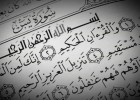 سورة يس
بسم الله الرحمن الرحيم
والقرآن الحكيم إنك لمن
مستقيم تنزيل العزيز الرحيم
فهم غافلون